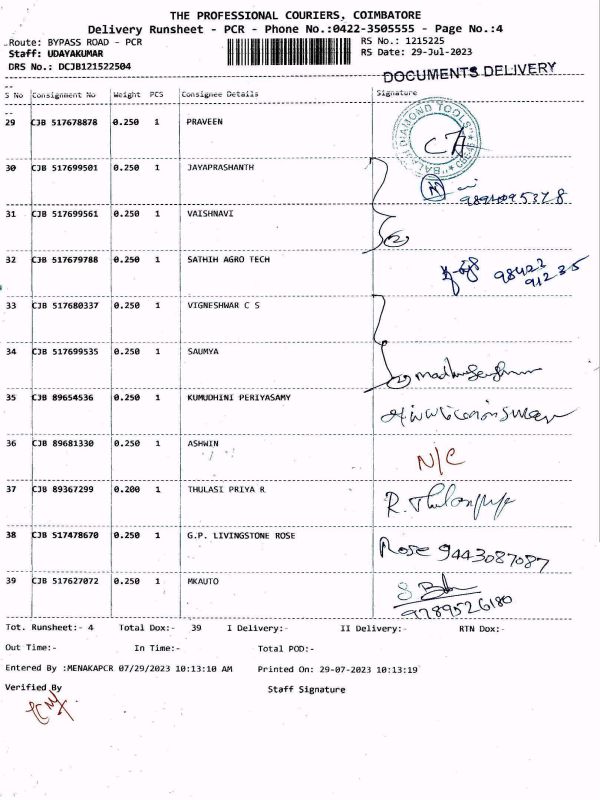 THE PROFESSIONAL COURIERS, COIMBATORE
Delivery Runsheet - PCR - Phone No.:0422-3505555 - Page No.:4
Route: BYPASS ROAD - PCR RS No.: 1215225
Staff: UDAYAKUMAR RS Date: 29-Jul-2023
DRS No.: DCJB121522504
DOCUMENTS DELIVERY
S No Consignment No Weight PCS Consignee Details Signature
29 CJB 517678878 0.250 1 PRAVEEN
DIAMOND TOOLS
30 CJB 517699501 0.250 1 JAYAPRASHANTH
31 CJB 517699561 0.250 1 VAISHNAVI
2
32 CJB 517679788 0.250 1 SATHIH AGRO TECH 98422
91235
33 CJB 517680337 0.250 1 VIGNESHWAR C S
34 CJB 517699535 0.250 1 SAUMYA 2
35 CJB 89654536 0.250 1 KUMUDHINI PERIYASAMY
36 CJB 89681330 0.250 1 ASHWIN N/C
37 CJB 89367299 0.200 1 THULASI PRIYA R
38 CJB 517478670 0.250 1 G.P. LIVINGSTONE ROSE Rose 9443087087
39 CJB 517627072 0.250 1 MKAUTO
9789526180
Tot. Runsheet:- 4 Total Dox:- 39 I Delivery:- II Delivery:- RTN Dox:-
Out Time:- In Time:- Total POD:-
Entered By :MENAKAPCR 07/29/2023 10:13:10 AM Printed On: 29-07-2023 10:13:19
Verified By Staff Signature